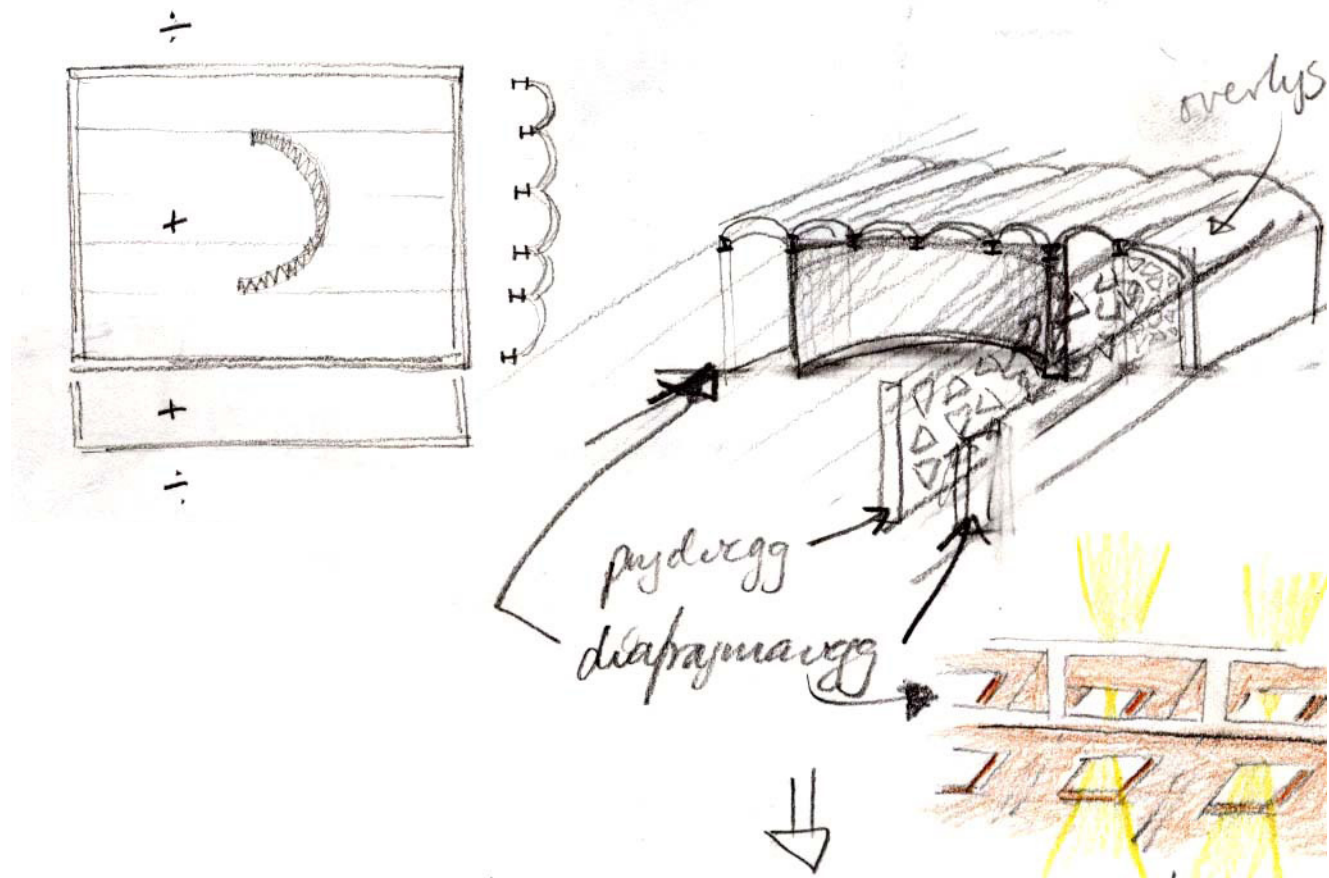 ÷
overlys
+
+
÷
prydvegg
diafragmavegg